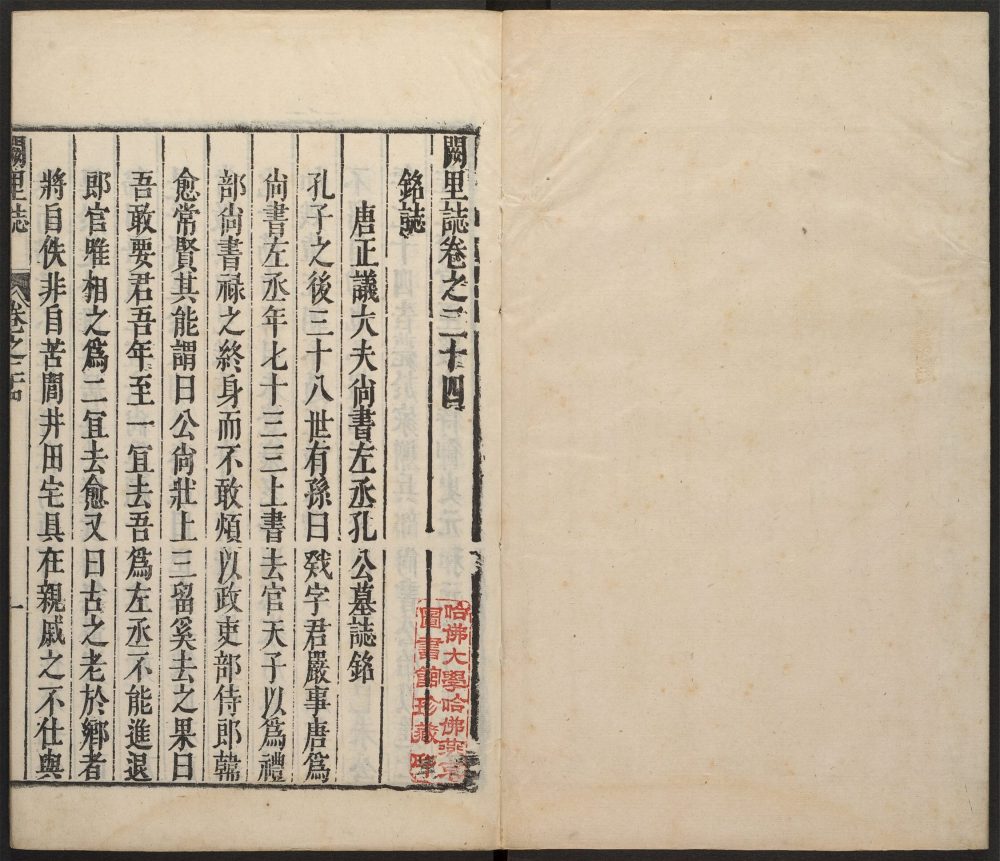 闕里誌卷之二十四
銘誌
唐正議大夫尚書左丞孔公墓誌銘
孔子之後三十八世有孫曰戣字君嚴事唐爲
尚書左丞年七十三三上書去官天子以爲禮
部尚書祿之終身而不敢煩以政吏部侍郎韓
愈常賢其能謂曰公尚壯上三留奚去之果曰
吾敢要君吾年至一宜去吾爲左丞不能進退
郎官唯相之爲二宜去愈又曰古之老於鄉者
將自佚非自苦閭井田宅具在親戚之不仕與
闕里誌
卷之二十四
一
哈佛大學哈佛燕京
圖書館珍藏印